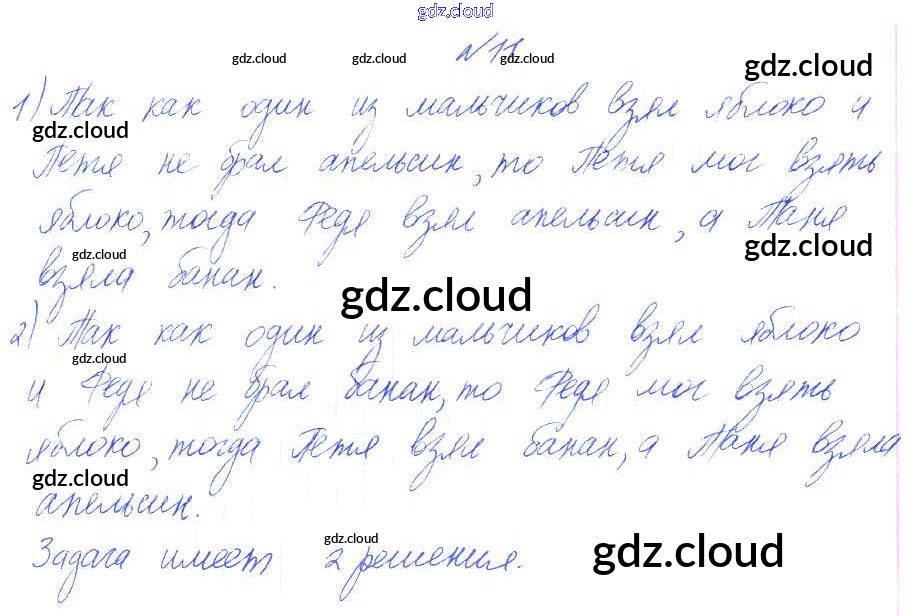 gdz.cloud
№ 11
gdz.cloud gdz.cloud gdz.cloud gdz.cloud
1) Так как один из мальчиков взял яблоко и
gdz.cloud
Петя не брал апельсин, то Петя мог взять
яблоко, тогда Федя взял апельсин, а Таня
gdz.cloud gdz.cloud
взяла банан.
gdz.cloud
2) Так как один из мальчиков взял яблоко
gdz.cloud
и Федя не брал банан, то Федя мог взять
яблоко, тогда Петя взял банан, а Таня взяла
gdz.cloud gdz.cloud
апельсин.
gdz.cloud gdz.cloud
Задача имеет 2 решения.